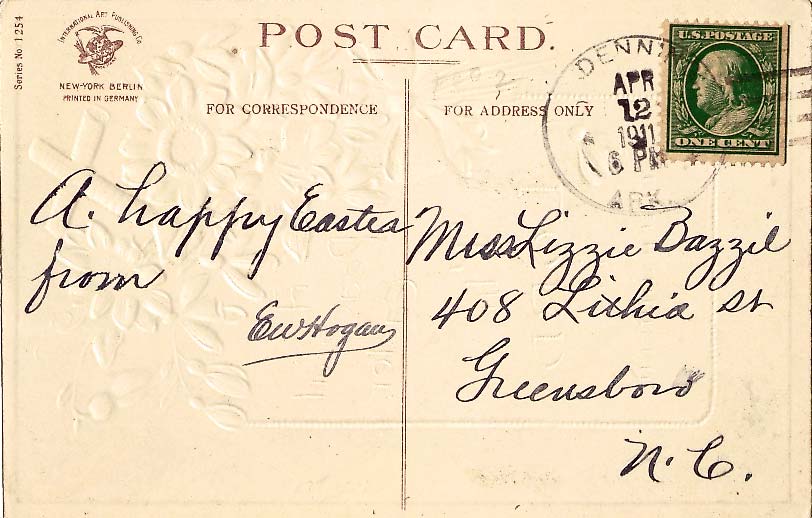 Series No. 1254
INTERNATIONAL ART PUBLISHING Co.
NEW-YORK BERLIN
PRINTED IN GERMANY
POST CARD.
FOR CORRESPONDENCE
FOR ADDRESS ONLY
APR
12
1911
6 PM
ARK.
U.S. POSTAGE
ONE CENT
A. happy Easter
from
EW Hogan
Miss Lizzie Dazzil
408 Lithia St
Greensboro
N. C.